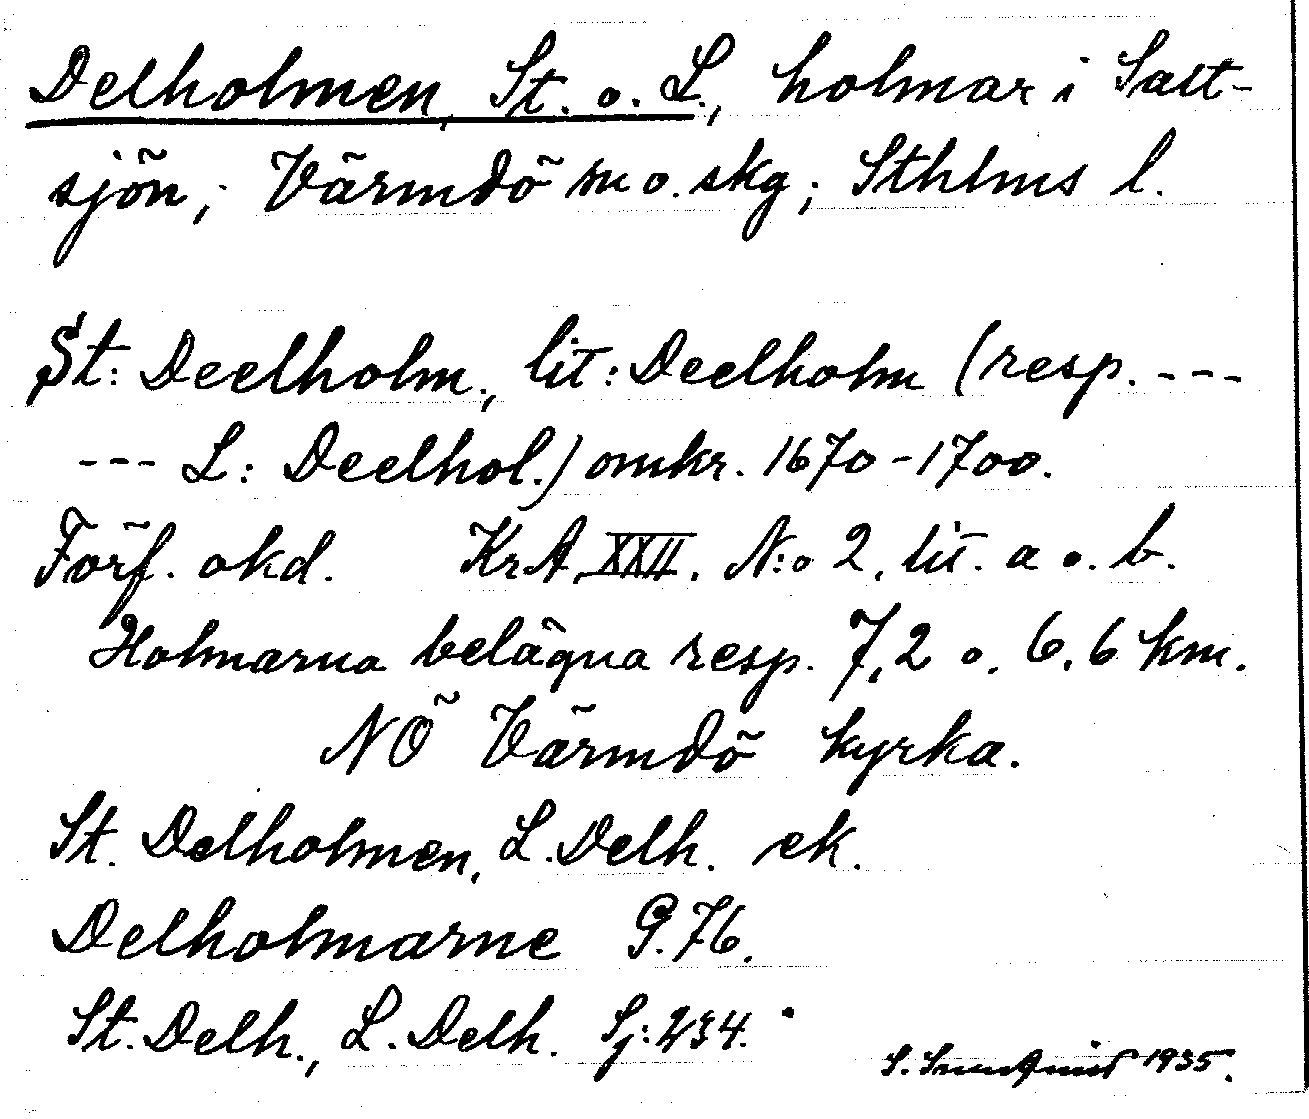 Delholmen, St. o. L., holmar i Salt-
sjön; Värmdö sn o. skg; Sthlms l.
St: Deelholm, lit: Deelholm (resp. ---
--- L: Deelhol.) omkr. 1670-1700.
Förf. okd. KrA, XXII. N:o 2, lit. a o. b.
Holmarna belägna resp. 7,2 o. 6,6 km.
NÖ Värmdö kyrka.
St. Delholmen, L. Delh. ek.
Delholmarne G.76.
St. Delh., L. Delh. Sj: 234.
S. 1935.